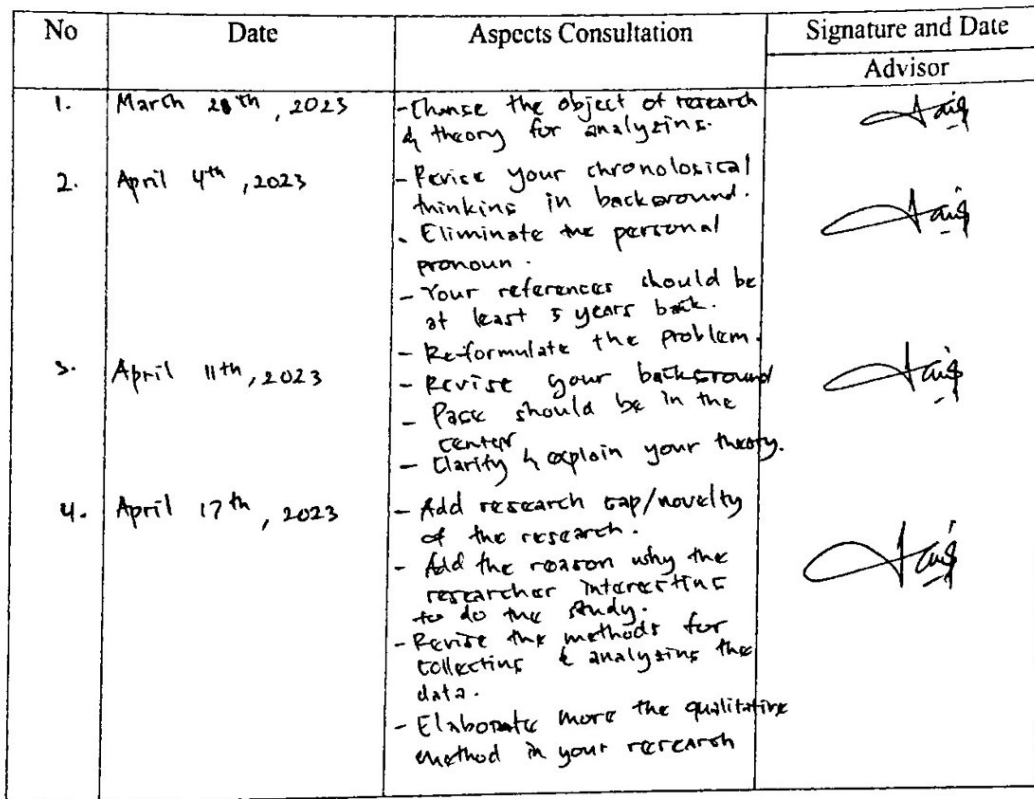 No Date Aspects Consultation Signature and Date
Advisor
1. March 28th, 2023 - Change the object of research
& theory for analyzing.
2. April 4th, 2023 - Revise your chronological
thinking in background.
- Eliminate the personal
pronoun.
- Your references should be
at least 5 years back.
- Re-formulate the problem.
3. April 11th, 2023 - Revise your background
- Page should be in the
center
- Clarify & explain your theory.
4. April 17th, 2023 - Add research gap/novelty
of the research.
- Add the reason why the
researcher interesting
to do the study.
- Revise the methods for
collecting & analyzing the
data.
- Elaborate more the qualitative
method in your research